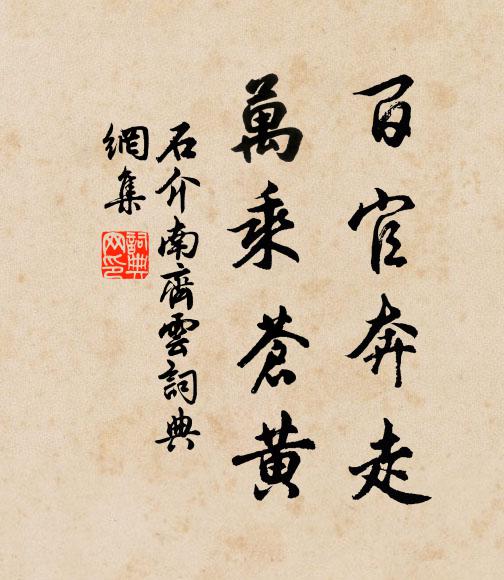 百官奔走
萬乘蒼黃
石介南齊雲詞典
網集
詞典
网印